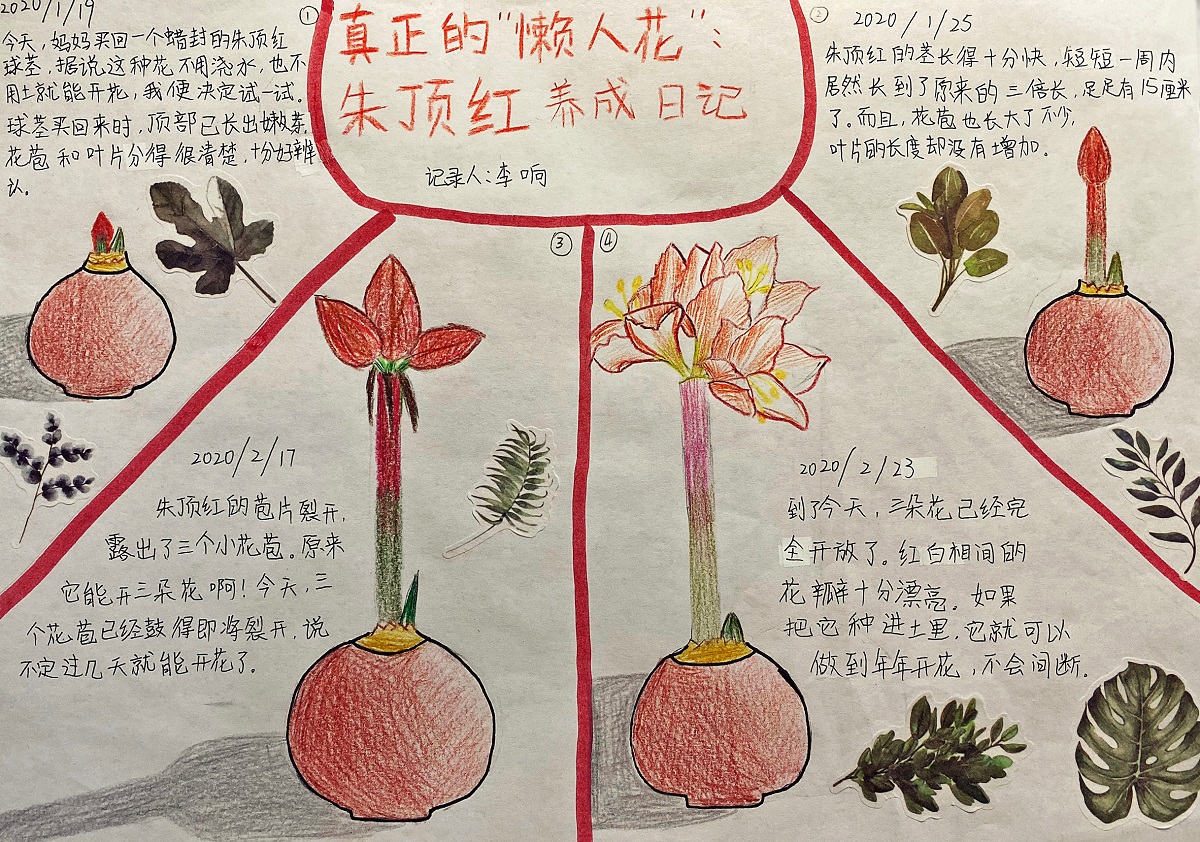 真正的"懒人花"：
朱顶红养成日记
记录人：李响
①
2020/1/19
今天，妈妈买回一个蜡封的朱顶红
球茎，据说这种花不用浇水，也不
用土就能开花，我便决定试一试。
球茎买回来时，顶部已长出嫩芽，
花苞和叶片分得很清楚，十分好辨
认。
②
2020/1/25
朱顶红的茎长得十分快，短短一周内
居然长到了原来的三倍长，足足有15厘米
了。而且，花苞也长大了不少，
叶片的长度却没有增加。
③
2020/2/17
朱顶红的苞片裂开，
露出了三个小花苞。原来
它能开三朵花啊！今天，三
个花苞已经鼓得即将裂开，说
不定过几天就能开花了。
④
2020/2/23
到了今天，三朵花已经完
全开放了。红白相间的
花瓣十分漂亮。如果
把它种进土里，它就可以
做到年年开花，不会间断。